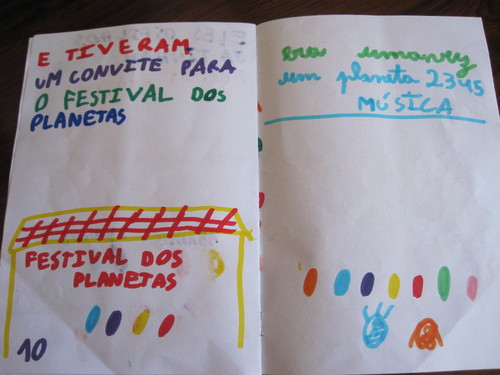 E TIVERAM
UM CONVITE PARA
O FESTIVAL DOS
PLANETAS
FESTIVAL DOS
PLANETAS
10
era umavez
um planeta 2345
MÚSICA